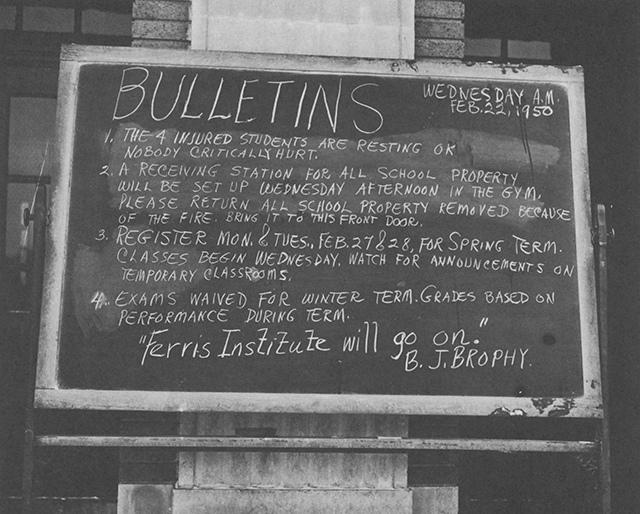 BULLETINS
WEDNESDAY A.M.
FEB. 22, 1950
1. THE 4 INJURED STUDENTS ARE RESTING OK
NOBODY CRITICALLY HURT.
2. A RECEIVING STATION FOR ALL SCHOOL PROPERTY
WILL BE SET UP WEDNESDAY AFTERNOON IN THE GYM.
PLEASE RETURN ALL SCHOOL PROPERTY REMOVED BECAUSE
OF THE FIRE. BRING IT TO THIS FRONT DOOR.
3. REGISTER MON. & TUES., FEB. 27 & 28, FOR SPRING TERM.
CLASSES BEGIN WEDNESDAY. WATCH FOR ANNOUNCEMENTS ON
TEMPORARY CLASSROOMS.
4. EXAMS WAIVED FOR WINTER TERM. GRADES BASED ON
PERFORMANCE DURING TERM.
"Ferris Institute will go on."
B. J. BROPHY.